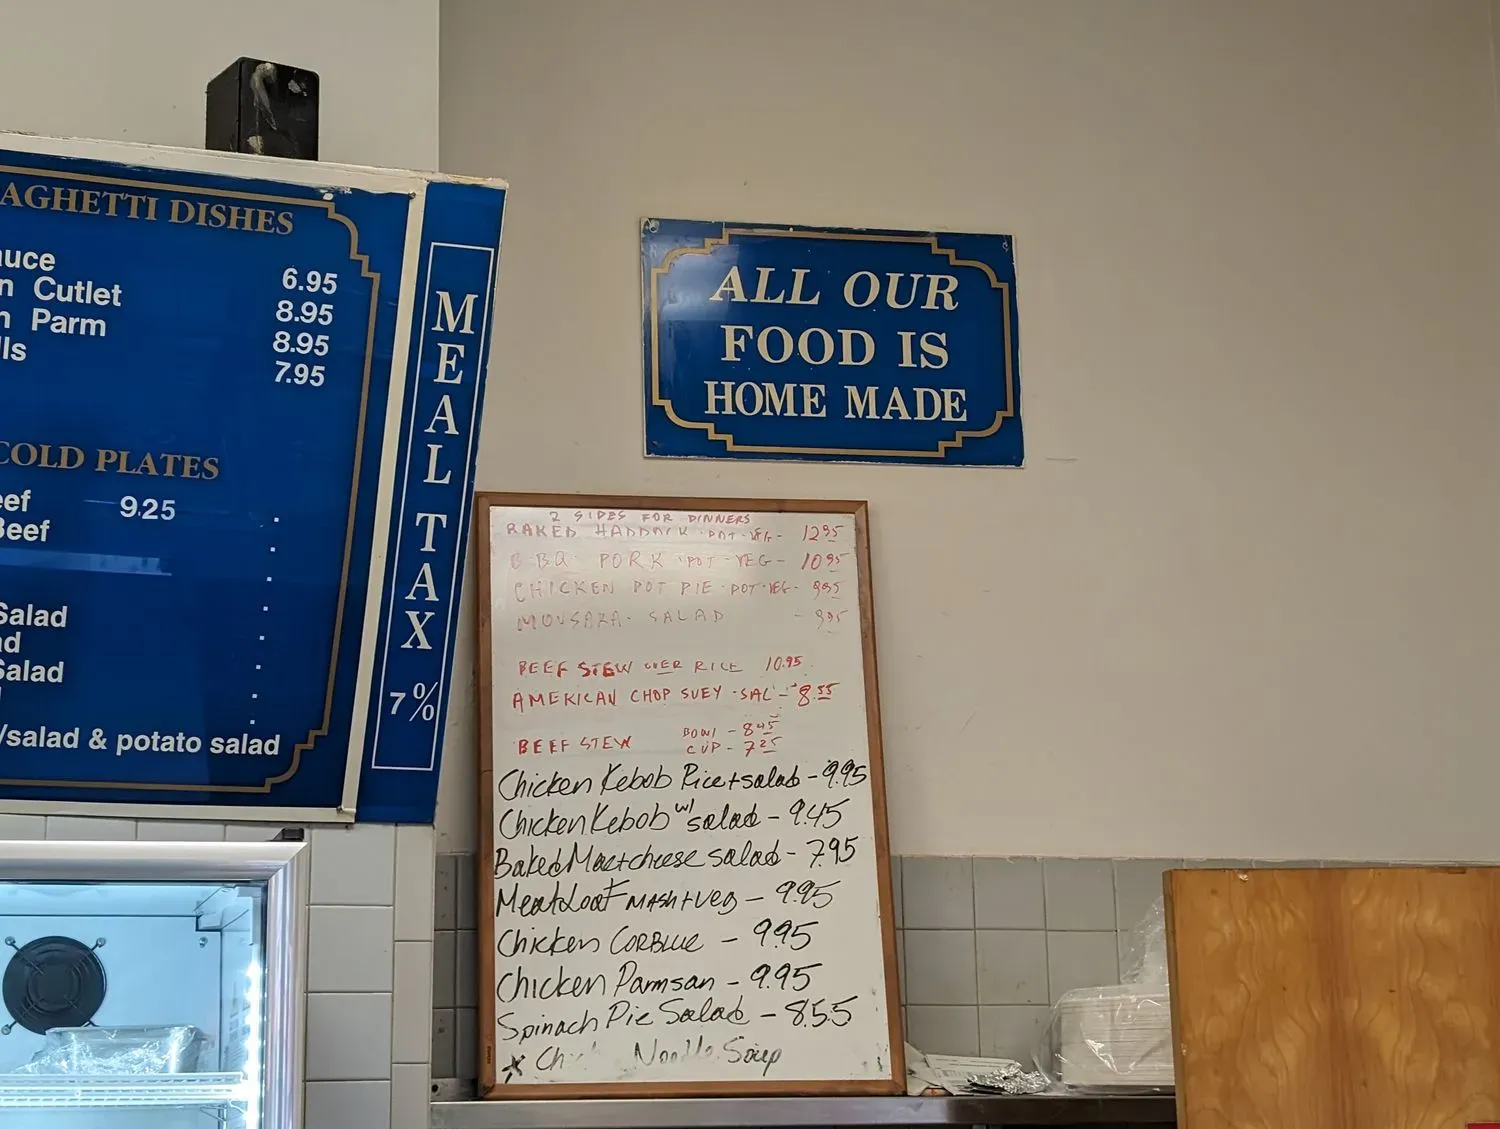 AGHETTI DISHES
auce 6.95
n Cutlet 8.95
n Parm 8.95
lls 7.95
COLD PLATES
eef 9.25
Beef
Salad
ad
Salad
/salad & potato salad
MEAL TAX
7%
ALL OUR
FOOD IS
HOME MADE
2 SIDES FOR DINNERS
BAKED HADDOCK - POT - VEG - 12.95
B-BQ PORK POT - VEG - 10.95
CHICKEN POT PIE - POT - VEG - 9.95
MOUSAKA - SALAD - 9.95
BEEF STEW OVER RICE 10.95
AMERICAN CHOP SUEY - SAL - 8.55
BEEF STEW BOWL - 8.45
CUP - 7.25
Chicken Kebob Rice + salad - 9.95
Chicken Kebob w/ salad - 9.45
Baked Mac + cheese salad - 7.95
Meat Loaf MASH + Veg - 9.95
Chicken CorBlue - 9.95
Chicken Parmsan - 9.95
Spinach Pie Salad - 8.55
Noodle Soup